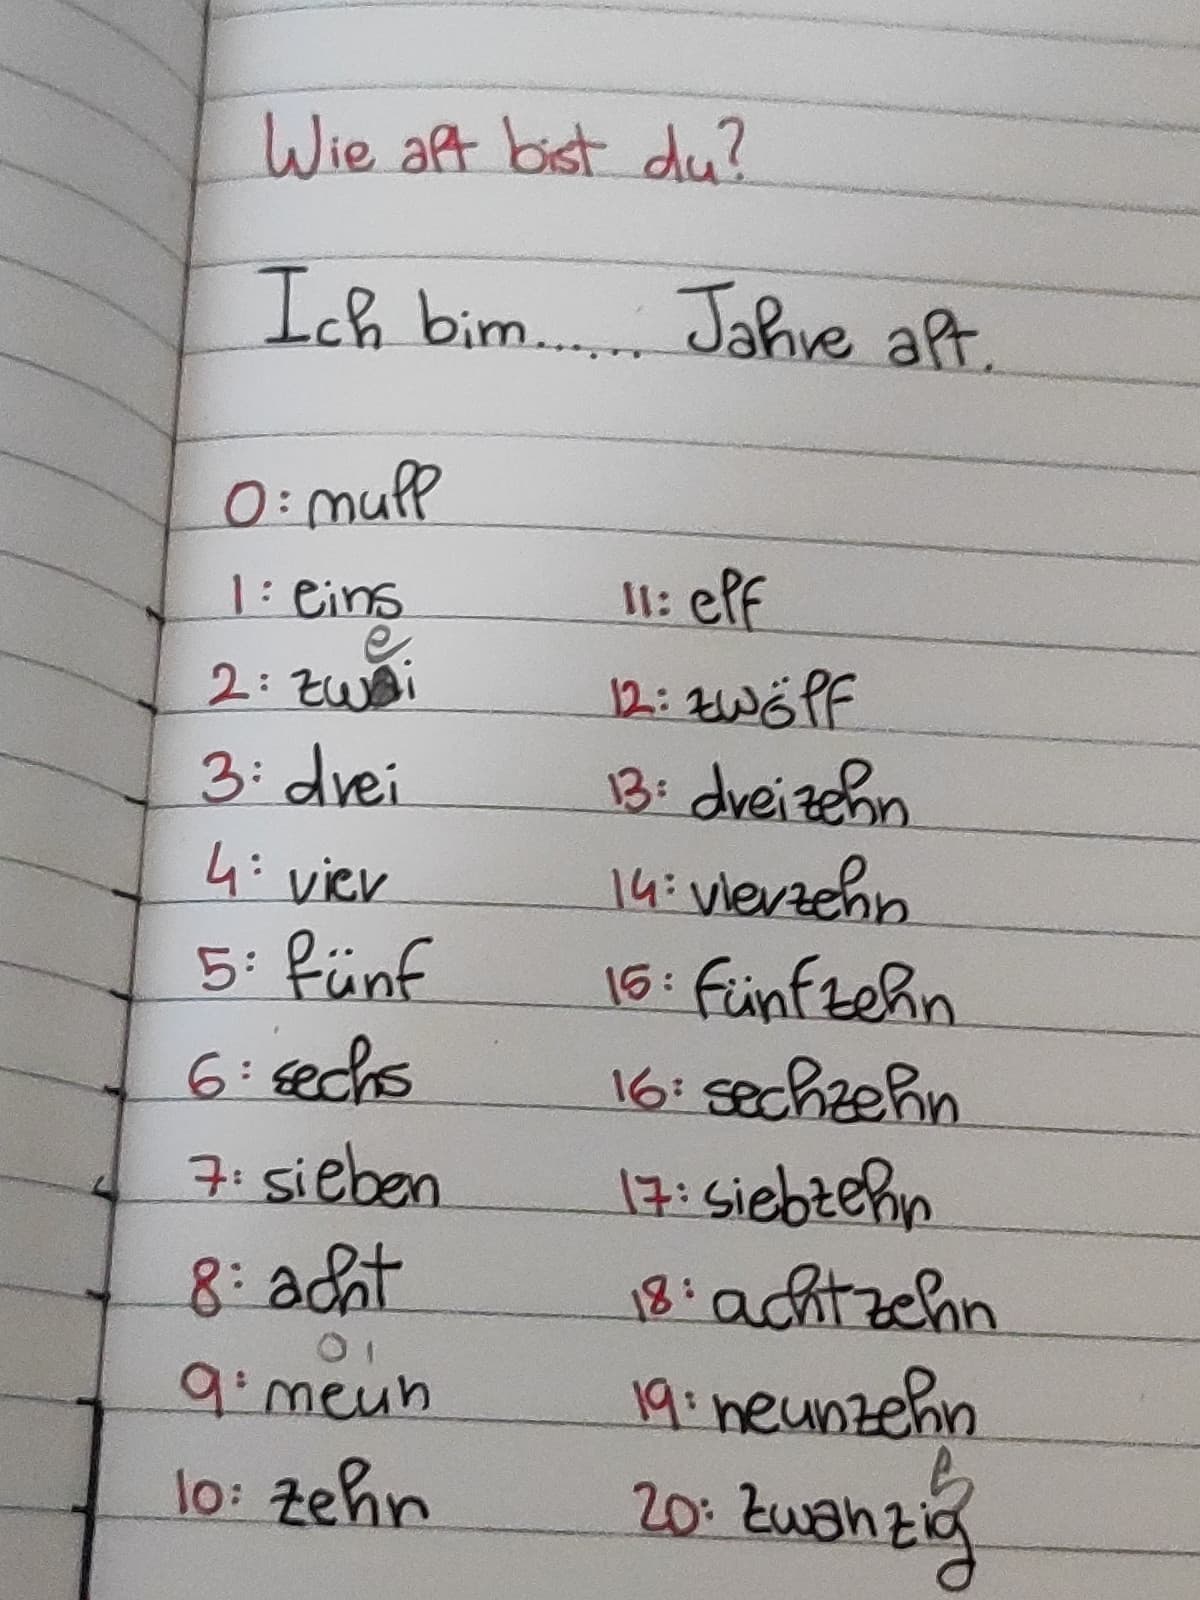 Wie alt bist du?
Ich bin...... Jahre alt.
0: null
1: eins 11: elf
e
2: zwei 12: zwölf
3: drei 13: dreizehn
4: vier 14: vierzehn
5: fünf 15: fünfzehn
6: sechs 16: sechzehn
7: sieben 17: siebzehn
8: acht 18: achtzehn
o i
9: neun 19: neunzehn
10: zehn 20: zwanzig